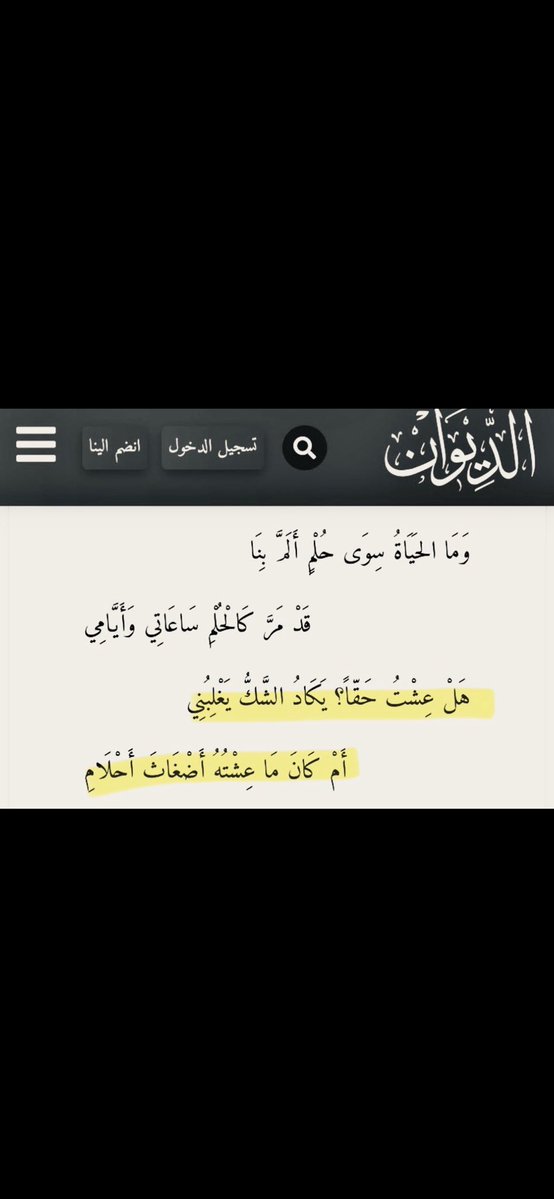 الدِّيوَان
تسجيل الدخول
انضم الينا
وَمَا الحَيَاةُ سِوَى حُلْمٍ أَلَمَّ بِنَا
قَدْ مَرَّ كَالْحُلْمِ سَاعَاتِي وَأَيَّامِي
هَلْ عِشْتُ حَقّاً؟ يَكَادُ الشَّكُّ يَغْلِبُنِي
أَمْ كَانَ مَا عِشْتُهُ أَضْغَاثَ أَحْلَامِ